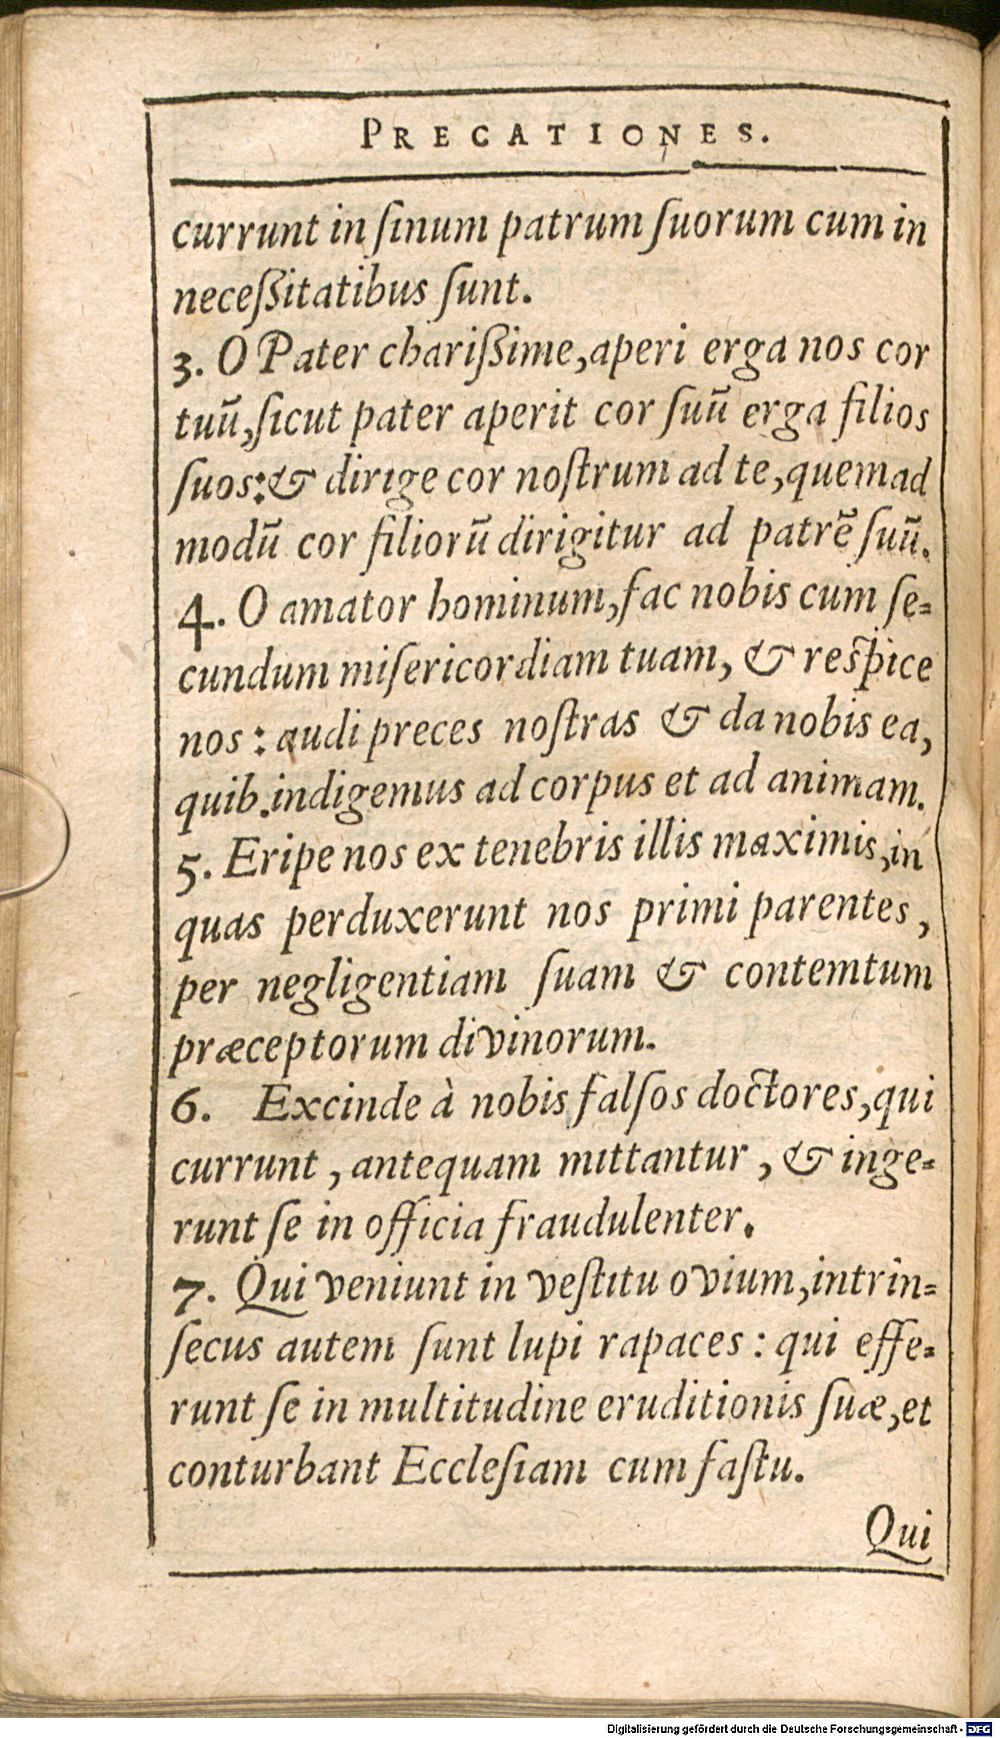 PRECATIONES.
currunt in ſinum patrum ſuorum cum in
neceſſitatibus ſunt.
3. O Pater chariſſime, aperi erga nos cor
tuū, ſicut pater aperit cor ſuū erga filios
ſuos: & dirige cor noſtrum ad te, quemad
modū cor filiorū dirigitur ad patrē ſuū.
4. O amator hominum, fac nobis cum ſe-
cundum miſericordiam tuam, & reſpice
nos: audi preces noſtras & da nobis ea,
quib. indigemus ad corpus et ad animam.
5. Eripe nos ex tenebris illis maximis, in
quas perduxerunt nos primi parentes,
per negligentiam ſuam & contemtum
præceptorum divinorum.
6. Excinde à nobis falſos doctores, qui
currunt, antequam mittantur, & inge-
runt ſe in officia fraudulenter.
7. Qui veniunt in veſtitu ovium, intrin-
ſecus autem ſunt lupi rapaces: qui effe-
runt ſe in multitudine eruditionis ſuæ, et
conturbant Eccleſiam cum faſtu.
Qui
Digitalisierung gefördert durch die Deutsche Forschungsgemeinschaft - DFG